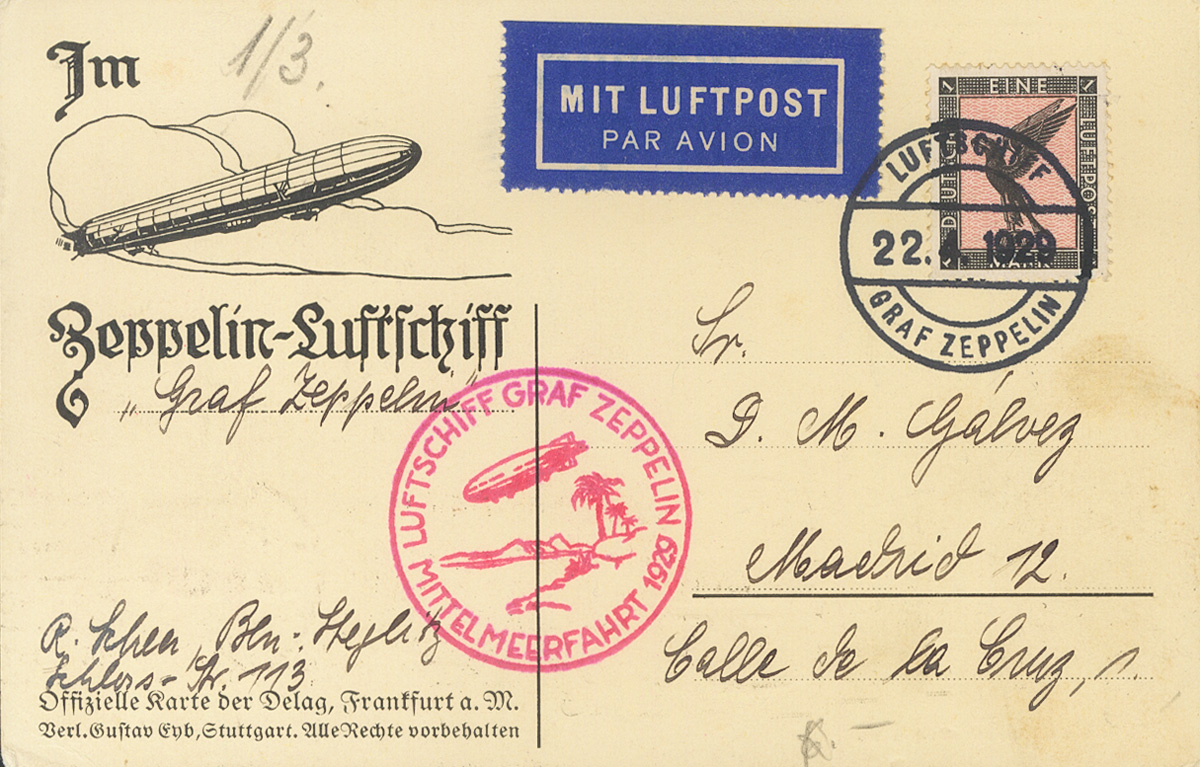 Im
1/3.
MIT LUFTPOST
PAR AVION
1 EINE 1
DEUTSCHE
LUFTPOST
MARK
LUFTSCHIFF
22.4.1929
GRAF ZEPPELIN
Zeppelin-Luftschiff
„Graf Zeppelin“
LUFTSCHIFF GRAF ZEPPELIN
MITTELMEERFAHRT 1929
Sr.
D. M. Gálvez
Madrid 12.
Calle de la Cruz, 1.
R. Bln-Steglitz
Schloss-Str. 113
Offizielle Karte der Delag, Frankfurt a. M.
Verl. Gustav Eyb, Stuttgart. Alle Rechte vorbehalten